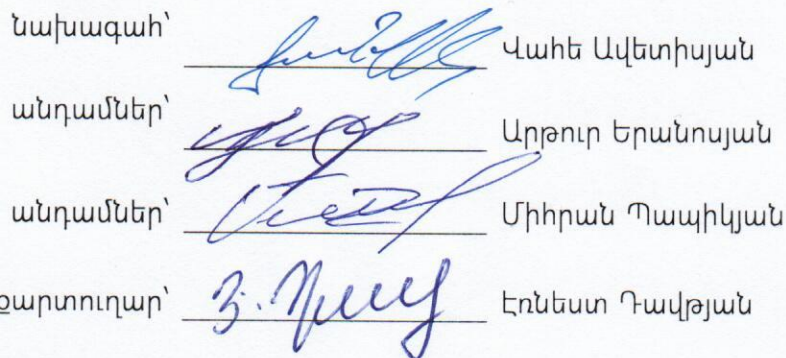 նախագահ՝ Վահե Ավետիսյան
անդամներ՝ Արթուր Երանոսյան
անդամներ՝ Միհրան Պապիկյան
քարտուղար՝ Էռնեստ Դավթյան